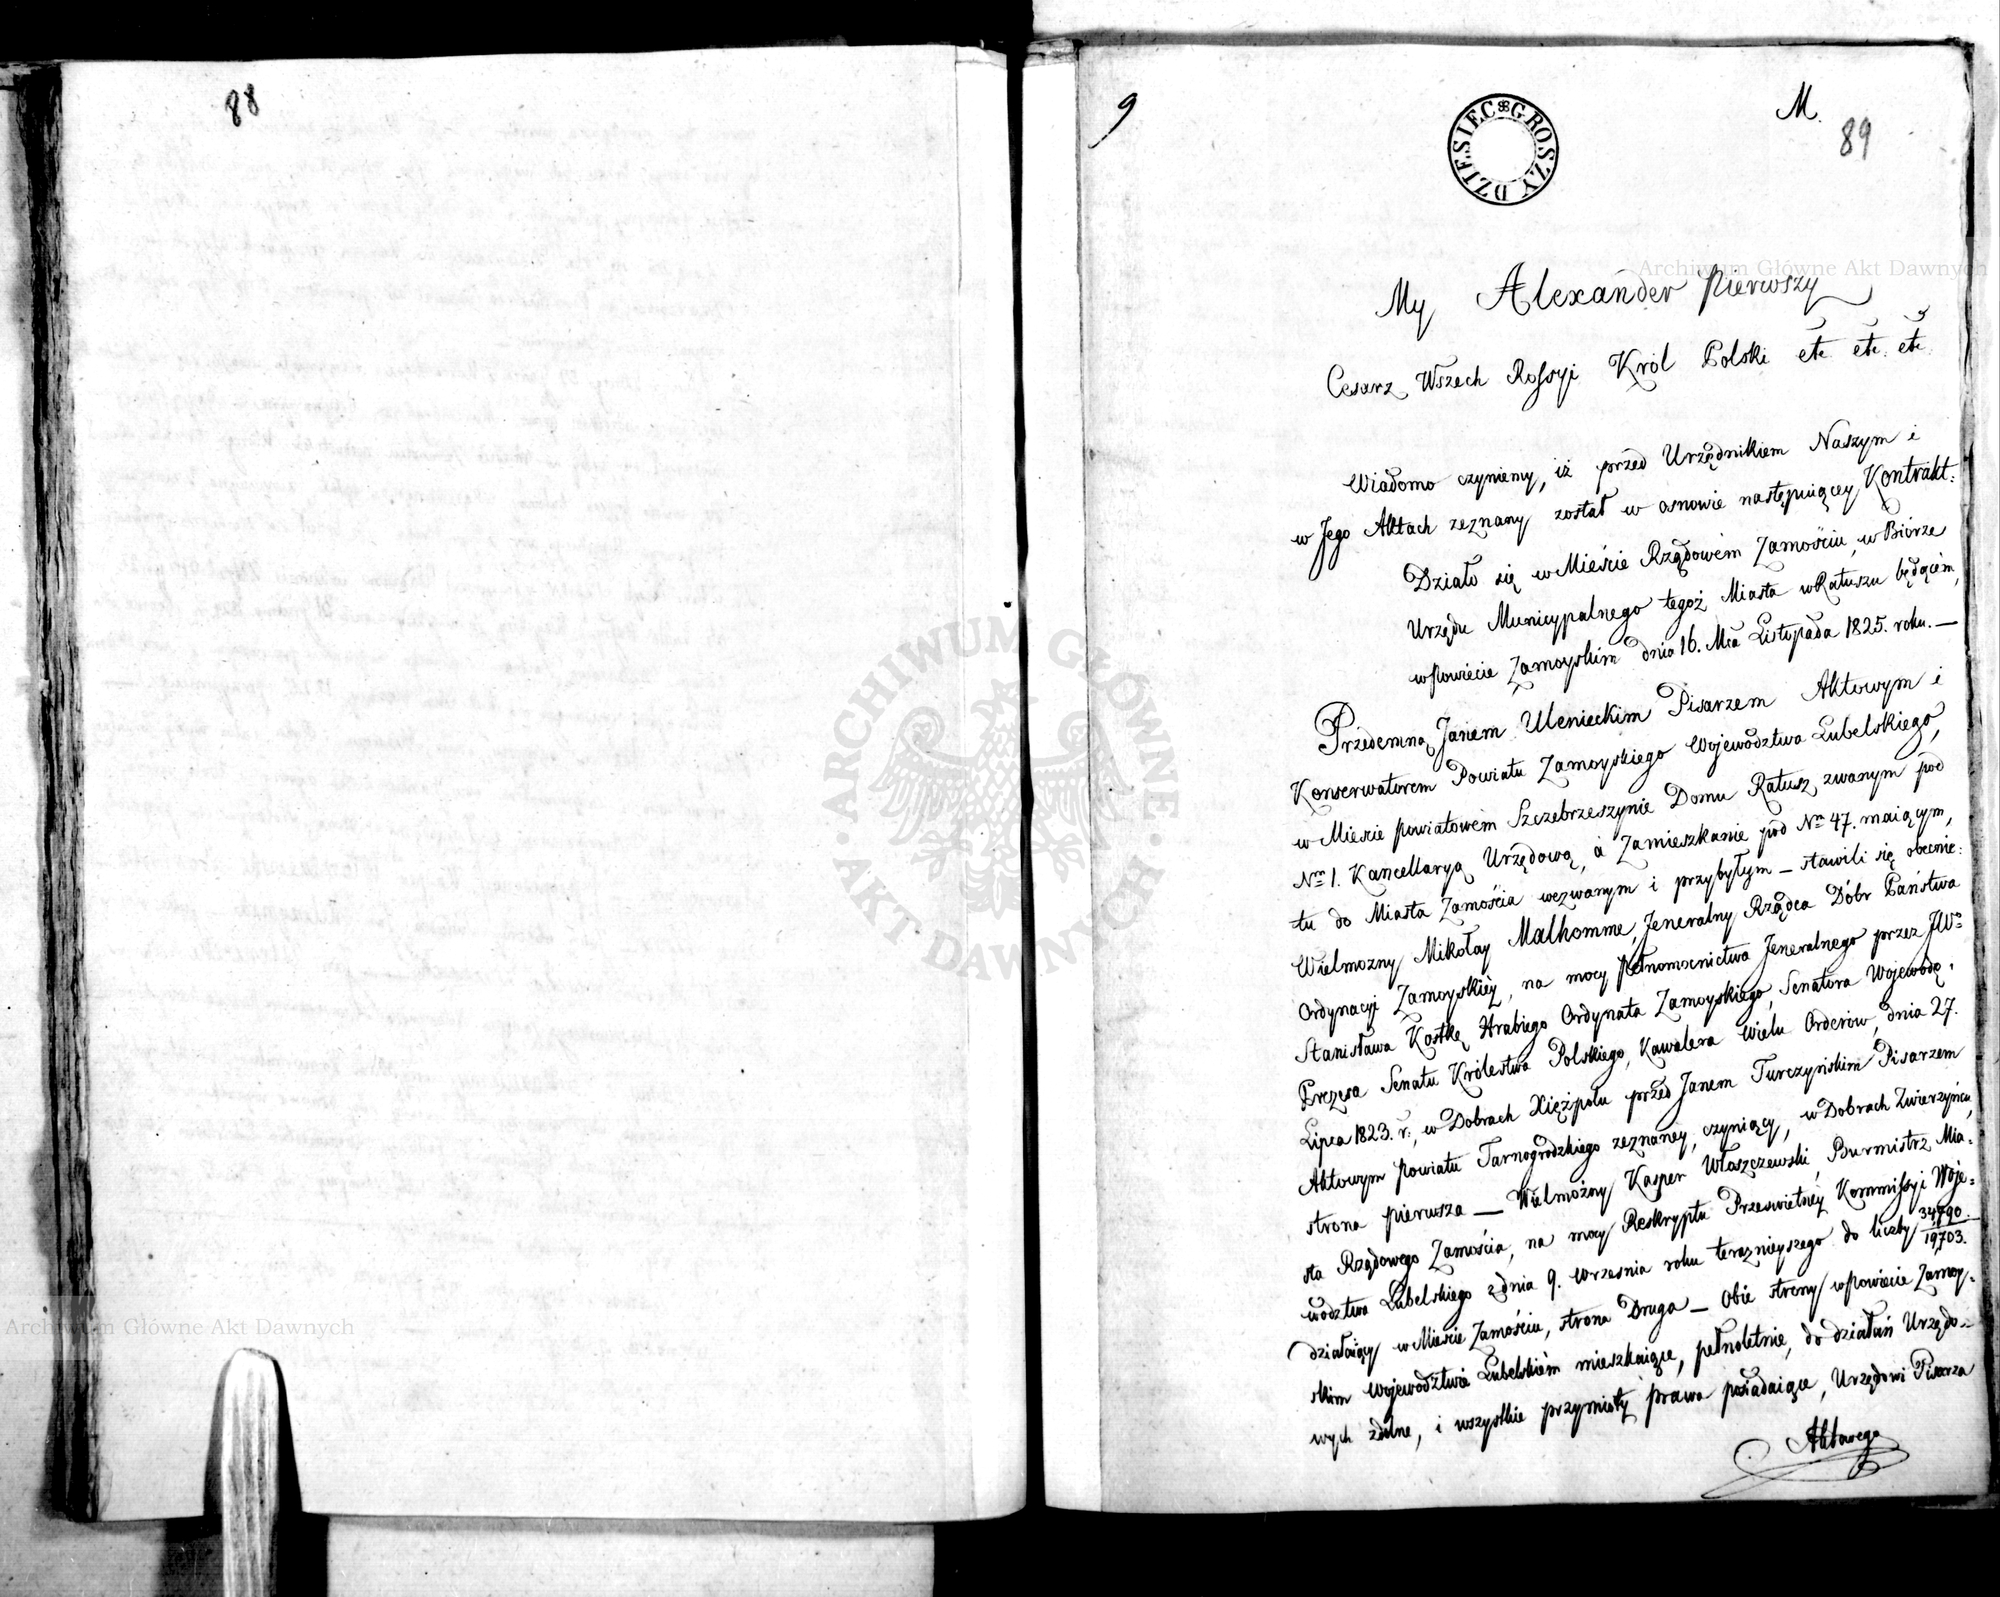 88
9
M.
89
DZIESIEC GROSZY
My Alexander Pierwszy
Cesarz Wszech Rossyi Król Polski etc etc. etc.
Wiadomo czyniemy, iż przed Urzędnikiem Naszym i
w Jego Aktach zeznany został w osnowie następuiącey Kontrakt:
Działo się w Mieście Rządowem Zamościu, w Biórze
Urzędu Municypalnego tegoż Miasta w Ratuszu będącem,
w Powiecie Zamoyskim dnia 16. Mca Listopada 1825. roku. —
Przedemną Janem Ulenieckim Pisarzem Aktowym i
Konserwatorem Powiatu Zamoyskiego Województwa Lubelskiego,
w Mieście powiatowem Szczebrzeszynie Domu Ratusz zwanym pod
Nrm 1. Kancellaryą Urzędową, a Zamieszkanie pod Nrm 47. maiącym,
tu do Miasta Zamościa wezwanym i przybyłym — stawili się obecnie:
Wielmożny Mikołay Malhomme, Jeneralny Rządca Dóbr Państwa
Ordynacyi Zamoyskiéy, na mocy pełnomocnictwa Jeneralnego przez JWo
Stanisława Kostkę Hrabiego Ordynata Zamoyskiego, Senatora Wojewodę,
Prezesa Senatu Królestwa Polskiego, Kawalera Wielu Orderow, dnia 27.
Lipca 1823. r:, w Dobrach Xiężpolu przed Janem Turczyńskim Pisarzem
Aktowym powiatu Tarnogrodzkiego zeznaney, czyniący, w Dobrach Zwierzyńcu,
strona pierwsza — Wielmożny Kasper Właszczewski, Burmistrz Mia-
sta Rządowego Zamościa, na mocy Reskryptu Prześwietney Kommissyi Woje-
wództwa Lubelskiego z dnia 9. Września roku teraznieyszego do liczby 34790/19703.
działaiący w Mieście Zamościu, strona Druga — Obie strony w powiecie Zamoy-
skim Województwie Lubelskiém mieszkaiące, pełnoletnie, do działań Urzędo-
wych zdolne, i wszystkie przymioty prawa posiadaiące, Urzędowi Pisarza
Aktowego
Archiwum Główne Akt Dawnych
Archiwum Główne Akt Dawnych
ARCHIWUM GŁÓWNE
AKT DAWNYCH